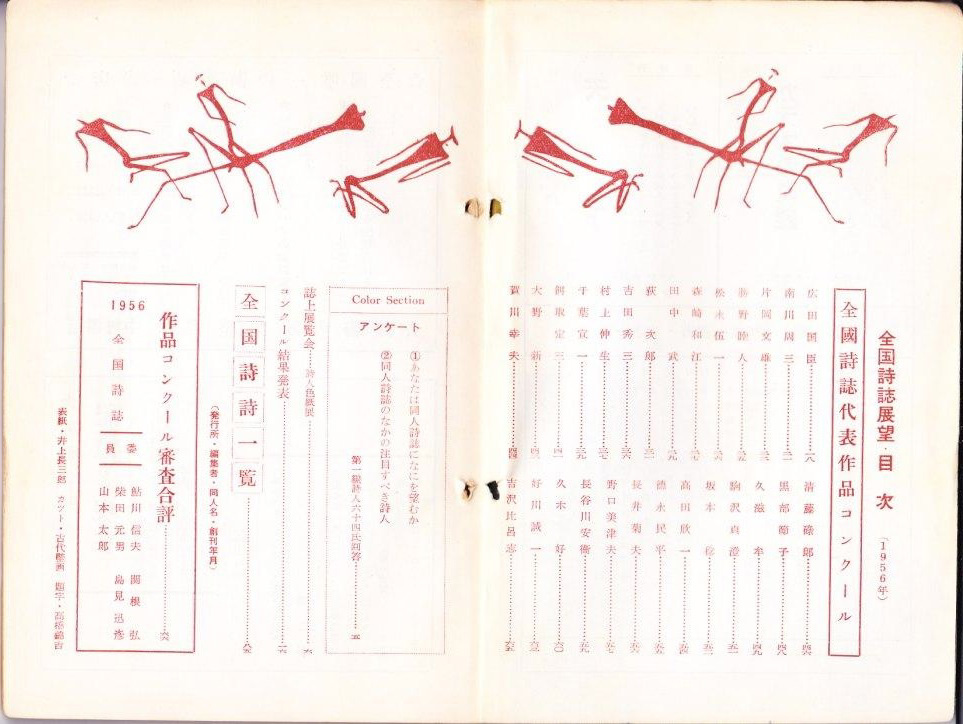 全国詩誌展望・目次
(1956年)
全國詩誌代表作品コンクール
広田国臣
南川周三
片岡文雄
勝野睦人
松永伍一
森崎和江
田中武
荻次郎
吉田秀三
村上伸生
千葉宣一
餌取定三
大野新
賀川幸夫
清藤碌郎
黒部節子
久滋牟
駒沢真澄
坂本稔
高田欣一
徳永民平
長井菊夫
野口美津夫
長谷川安衛
久木好
好川誠一
吉沢比呂志
Color Section
アンケート
①あなたは同人詩誌になにを望むか
②同人詩誌のなかの注目すべき詩人
第一線詩人六十四氏回答
誌上展覧会……詩人色紙展
コンクール結果発表
全国詩誌一覧
(発行所・編集者・同人名・創刊年月)
作品コンクール審査合評
1956
全国詩誌
委員
鮎川信夫 関根弘
柴田元男 鳥見迅彦
山本太郎
表紙・井上長三郎 カット・古代壁画 題字・高橋錦吉